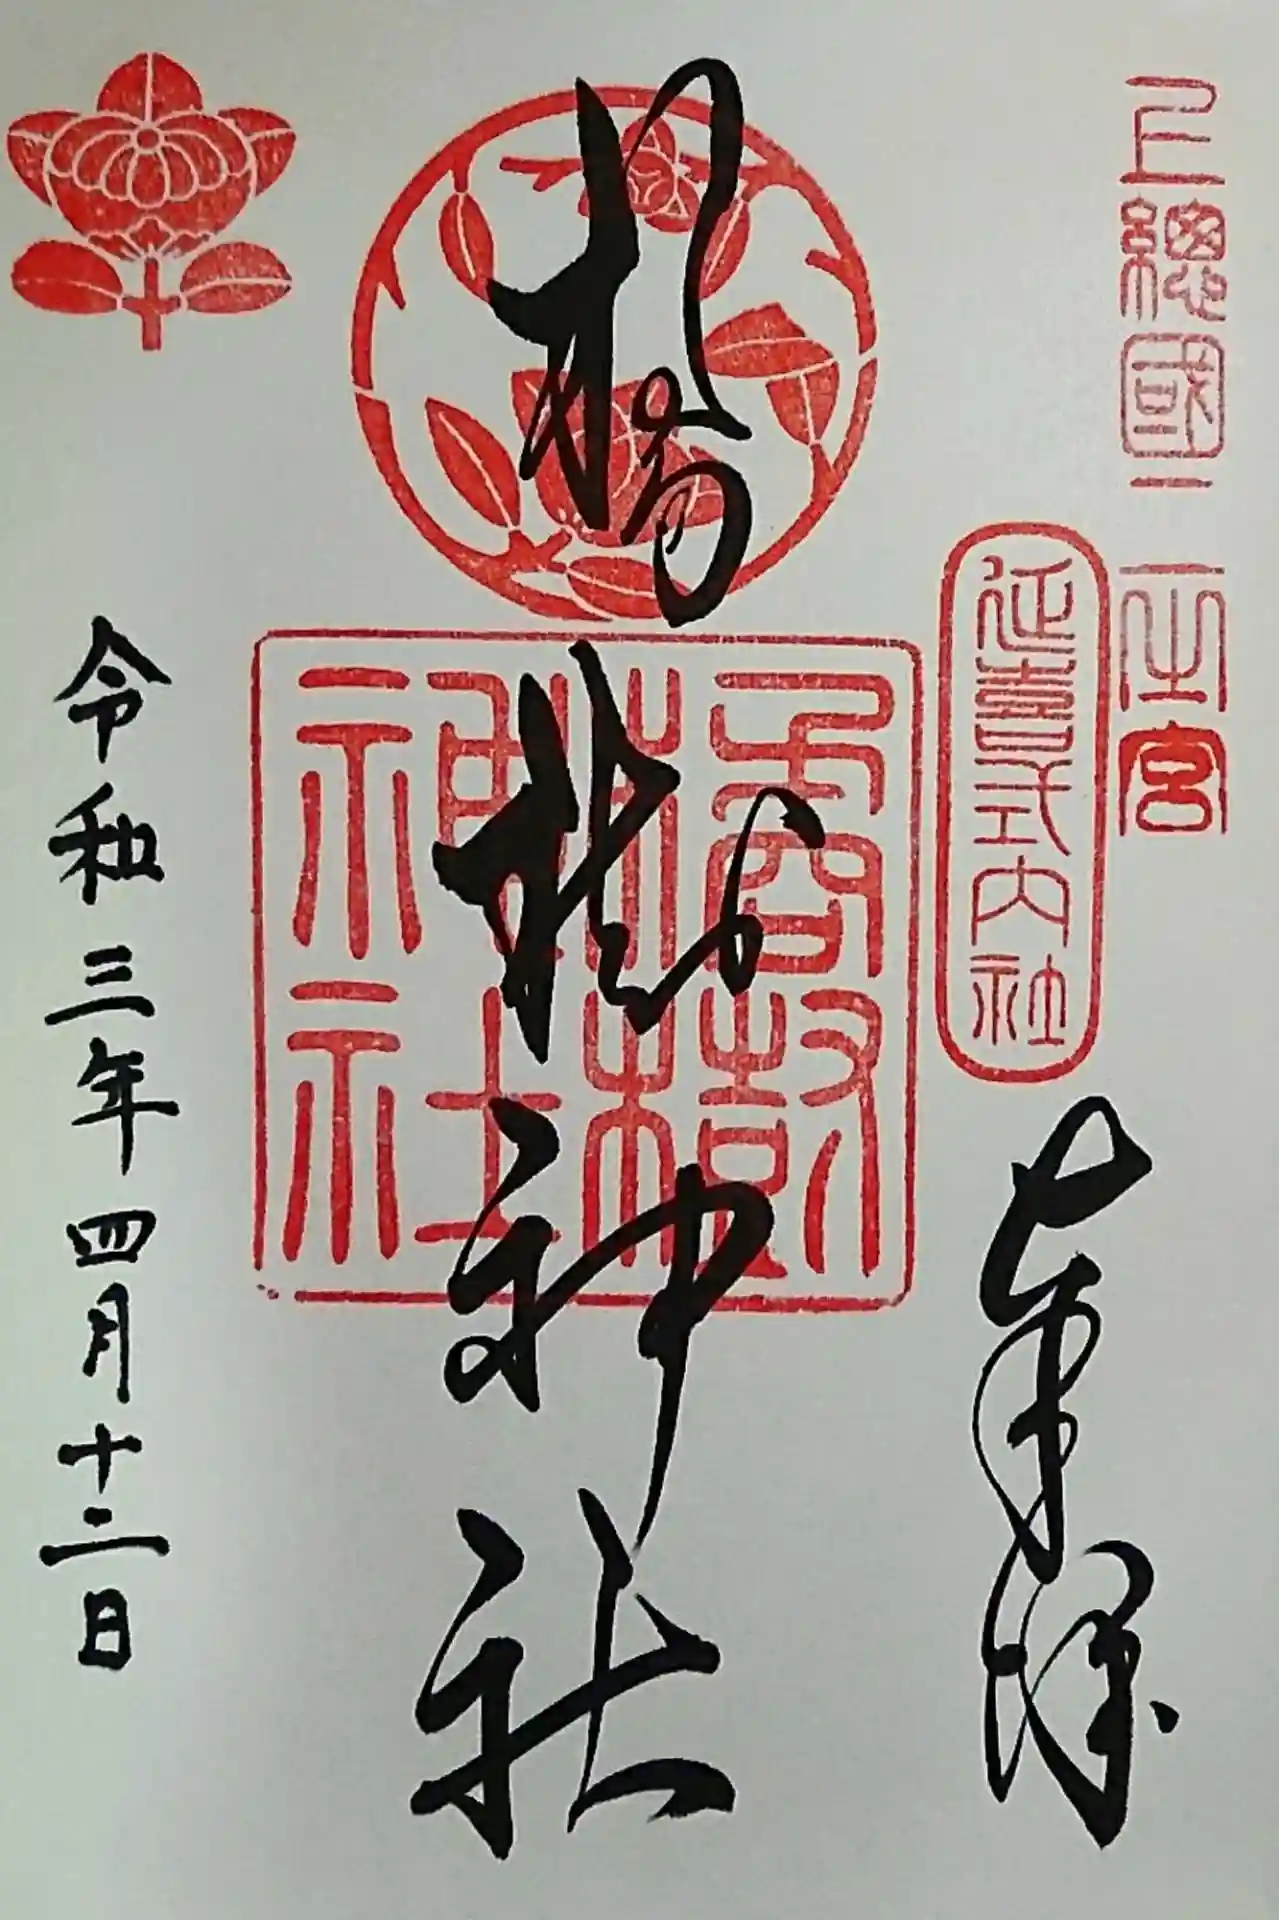 上總國二之宮
延喜式内社
奉拝
橘樹神社
橘樹神社
令和三年四月十二日